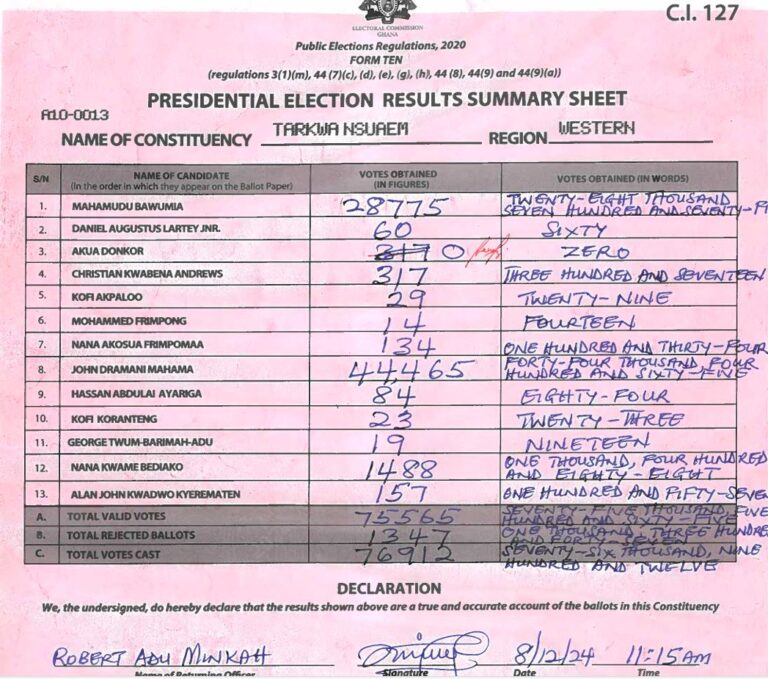 C.I. 127
ELECTORAL COMMISSION
GHANA
Public Elections Regulations, 2020
FORM TEN
(regulations 3(1)(m), 44 (7)(c), (d), (e), (g), (h), 44 (8), 44(9) and 44(9)(a))
PRESIDENTIAL ELECTION RESULTS SUMMARY SHEET
A10-0013
NAME OF CONSTITUENCY TARKWA NSUAEM REGION WESTERN
S/N NAME OF CANDIDATE (In the order in which they appear on the Ballot Paper) VOTES OBTAINED (IN FIGURES) VOTES OBTAINED (IN WORDS)
1. MAHAMUDU BAWUMIA 28775 TWENTY-EIGHT THOUSAND SEVEN HUNDRED AND SEVENTY-FI
2. DANIEL AUGUSTUS LARTEY JNR. 60 SIXTY
3. AKUA DONKOR 317 0 ZERO
4. CHRISTIAN KWABENA ANDREWS 317 THREE HUNDRED AND SEVENTEEN
5. KOFI AKPALOO 29 TWENTY-NINE
6. MOHAMMED FRIMPONG 14 FOURTEEN
7. NANA AKOSUA FRIMPOMAA 134 ONE HUNDRED AND THIRTY-FOUR
8. JOHN DRAMANI MAHAMA 44,465 FORTY-FOUR THOUSAND, FOUR HUNDRED AND SIXTY-FIVE
9. HASSAN ABDULAI AYARIGA 84 EIGHTY-FOUR
10. KOFI KORANTENG 23 TWENTY-THREE
11. GEORGE TWUM-BARIMAH-ADU 19 NINETEEN
12. NANA KWAME BEDIAKO 1488 ONE THOUSAND, FOUR HUNDRED AND EIGHTY-EIGHT
13. ALAN JOHN KWADWO KYEREMATEN 157 ONE HUNDRED AND FIFTY-SEVEN
A. TOTAL VALID VOTES 75565 SEVENTY-FIVE THOUSAND, FIVE HUNDRED AND SIXTY-FIVE
B. TOTAL REJECTED BALLOTS 1347 ONE THOUSAND, THREE HUNDRED AND FORTY-SEVEN
C. TOTAL VOTES CAST 76912 SEVENTY-SIX THOUSAND, NINE HUNDRED AND TWELVE
DECLARATION
We, the undersigned, do hereby declare that the results shown above are a true and accurate account of the ballots in this Constituency
ROBERT ADU MINKAH 8/12/24 11:15AM
Name of Returning Officer Signature Date Time